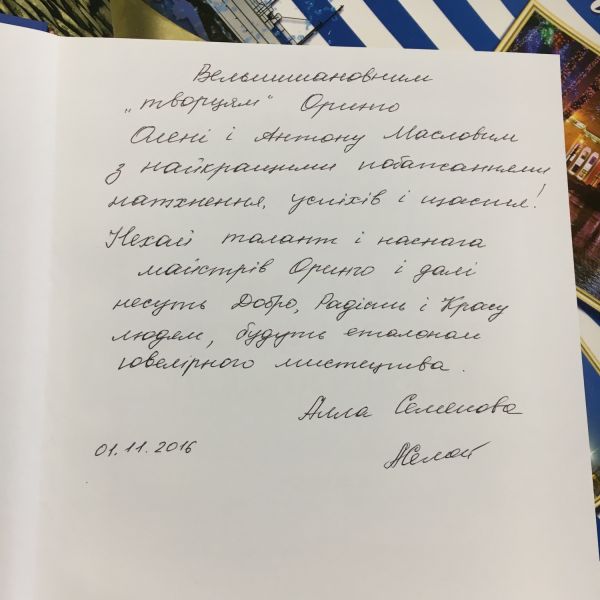 Вельмишановним
„творцям" Оринго
Олені і Антону Масловим
з найкращими побажаннями
натхнення, успіхів і щастя!
Нехай талант і наснага
майстрів Оринго і далі
несуть Добро, Радість і Красу
людям, будуть еталоном
ювелірного мистецтва.
Алла Семенова
01.11.2016